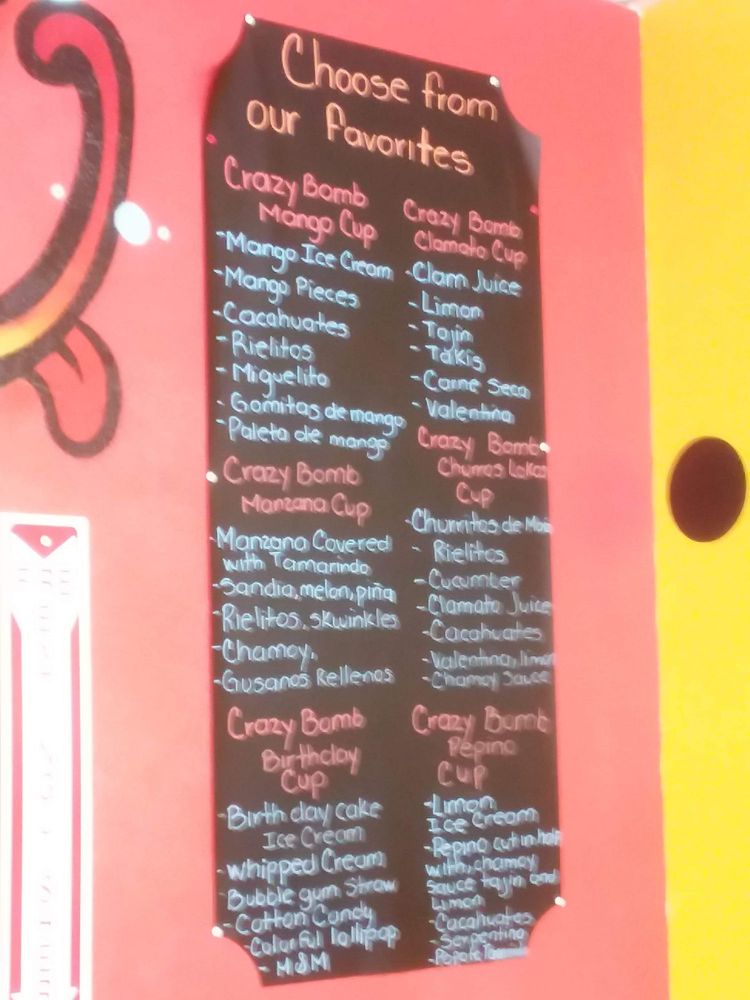 Choose from
our favorites
Crazy Bomb
Mango Cup
-Mango Ice Cream
-Mango Pieces
-Cacahuates
-Rielitos
-Miguelito
-Gomitas de mango
-Paleta de mango
Crazy Bomb
Manzana Cup
-Manzana Covered
with Tamarindo
-Sandia, melon, piña
-Rielitos, skwinkles
-Chamoy,
-Gusanos Rellenos
Crazy Bomb
Birthday
Cup
-Birthday cake
Ice Cream
-whipped Cream
-Bubble gum Straw
-Cotton Candy
-Colorful lollipop
-M&M
Crazy Bomb
Clamato Cup
-Clam Juice
-Limon
-Tajin
-Takis
-Carne Seca
-Valentina
Crazy Bomb
Churros Lokos
Cup
-Churritos de
- Rielitos
-Cucumber
-Clamato Juice
-Cacahuates
-Valentina, limon
-Chamoy Sauce
Crazy Bomb
Pepino
Cup
-Limon
Ice Cream
-Pepino cut in half
with, chamoy
Sauce tajin and
Limon
-Cacahuates
-Serpentina